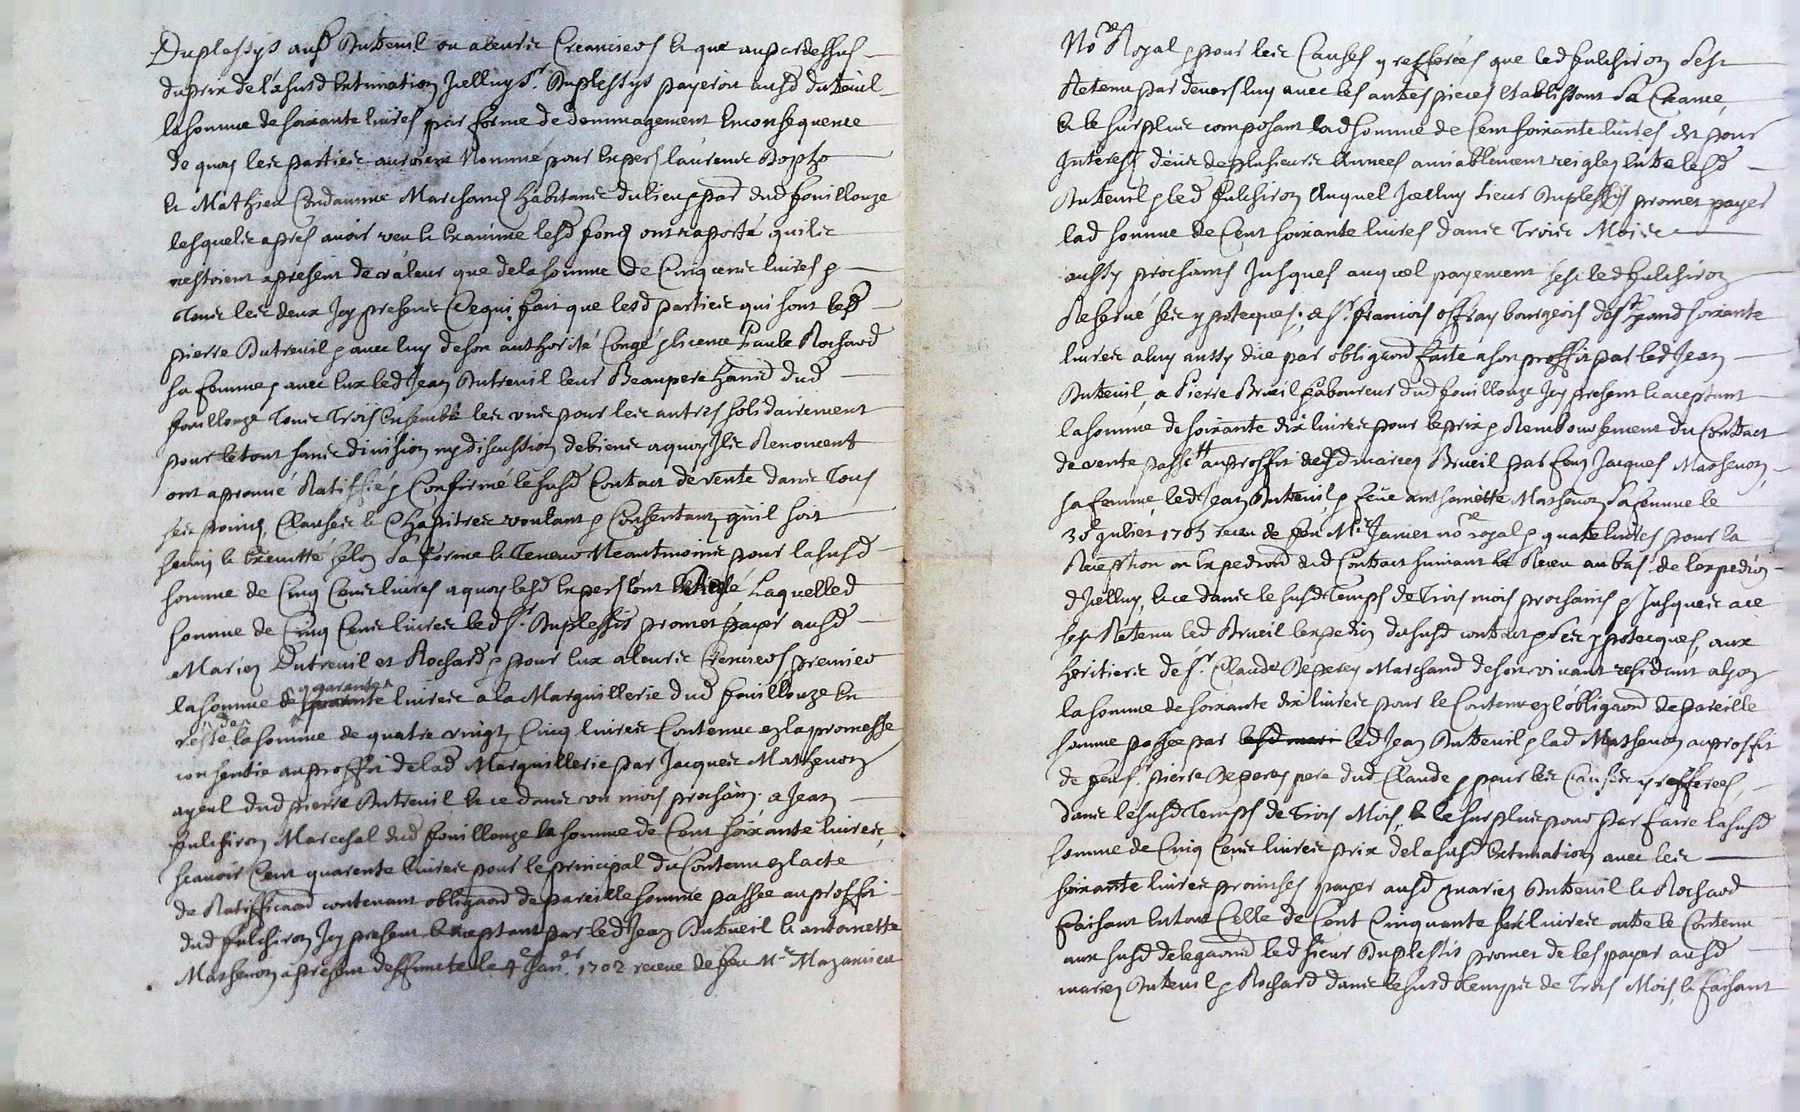 Duplessys ausd Dutreuil ou a leurs Creanciers & que au par dessus
du prix de lasusd Estimation Jcelluy Sr. Duplessys payeroit ausd dutreuil
la somme de soixante livres par forme de demmagement En consequence
de quoy les parties auroient Nommé pour Expers laurens
& Mathieu Condamine Marchand habitans du lieu & par dud fouillouze
lesquels apres avoir veu & Examine lesd fonds ont raporté quils
restoient apresent de valeur que de la somme de Cinq cens livres p
Tous les deux Jcy presens Ce qui fait que lesd parties qui sont led
pierre Dutreuil p avec luy de son authorité Congé p licence Paule Rochard
sa femme p avec Eux led Jean Dutreuil leur Beaupere dud
fouillouze Tous Trois Ensemble les uns pour les autres solidairement
pour le tout sans division ny discustion de biens a quoy Jls Renoncent
ont aprouué Ratiffié p Confirmé le susd Contact de vente dans Tous
ses poincts Clauses & Chapitres voulant p Consentant quil soit
suiuy & Executté selon sa forme & Teneur Neantmoins pour la susd
somme de Cinq Cens livres a quoy lesd Expers lont Laquelled
somme de Cinq Cens livres led Sr. Duplessis promet payer ausd
Mariez Dutreuil et Rochard p pour Eux a leurs Creanciers premier
la somme de quarante livres a la Marguillerie dud fouillouze En
reste de la somme de quatre vingt Cinq livres Contenue en la promesse
consentie au proffit de lad Marguillerie par Jacques Mathenon
ayeul dud pierre Dutreuil & ce dans un mois prochain, a Jean
fulchiron Marechal dud fouillouze la somme de Cent soixante livres,
scavoir Cent quarente livres pour le principal du Contenu en lacte
de Ratifficaon contenant obligaon de pareille somme passee au proffit
dud fulchiron Jcy present & aceptant par led Jean Dutreuil & antoinette
Mathenon apresent deffuncte le 4 Janer 1702 receue de feu Me Mazenieu
Nore Royal p pour les Causes y refferées que led fulchiron sest
Retenu par devers luy avec les autres pieces Etablissant sa Creance,
& le surplus composant lad somme de Cent soixante livres est pour
Jnterest deus de plusieurs annees amiablement reiglez Entre lesd
Dutreuil p led fulchiron Auquel Jcelluy sieur Duplessis promet payer
lad somme de Cent soixante livres dans Trois Mois
aussy prochains Jusques auquel payement sest led fulchiron
Reservé ses ypoteques; a Sr. francois offray bourgeois de St chamond soixante
livres a luy aussy due par obligaon faite a son proffit par led Jean
Dutreuil, a Pierre Brueil Laboureur dud fouillouze Jcy present & aceptant
la somme de soixante dix livres pour le prix p Remboursement du Contact
de vente passé au proffit desd mariez Brueil par feu Jacques Mathenon,
sa femme, led Jean Dutreuil p feue anthoinette Mathenon sa femme le
receu de feu Me Janier nore royal p quatre livres pour la
Reception ou Expedion dud Contact suivant le Receu au bas de lexpedion
dJcelluy, & ce dans le susd Temps de Trois mois prochains p Jusques a ce
sest Retenu led Brueil lexpedion du susd contact p ses ypoteques, aux
heritiers de Sr. Claude Reperey Marchand de son vivant residant a lyon
la somme de soixante dix livres pour le Contenu en lobligaon de pareille
somme passée par led Jean Dutreuil p lad Mathenon au proffit
de feu Sr pierre Reperey pere dud Claude p pour les Causes y refferees
dans le susd Temps de Trois Mois, & le surplus pour parfaire la susd
somme de Cinq Cens livres prix de la susd Estimation avec les
soixante livres promises payer ausd mariez Dutreuil & Rochard
faisant En tout Celle de Cent Cinquante six livres outre le Contenu
aux susd delegaons led sieur Duplessis promet de les payer ausd
mariez Dutreuil p Rochard dans le susd temps de Trois Mois, & faisant